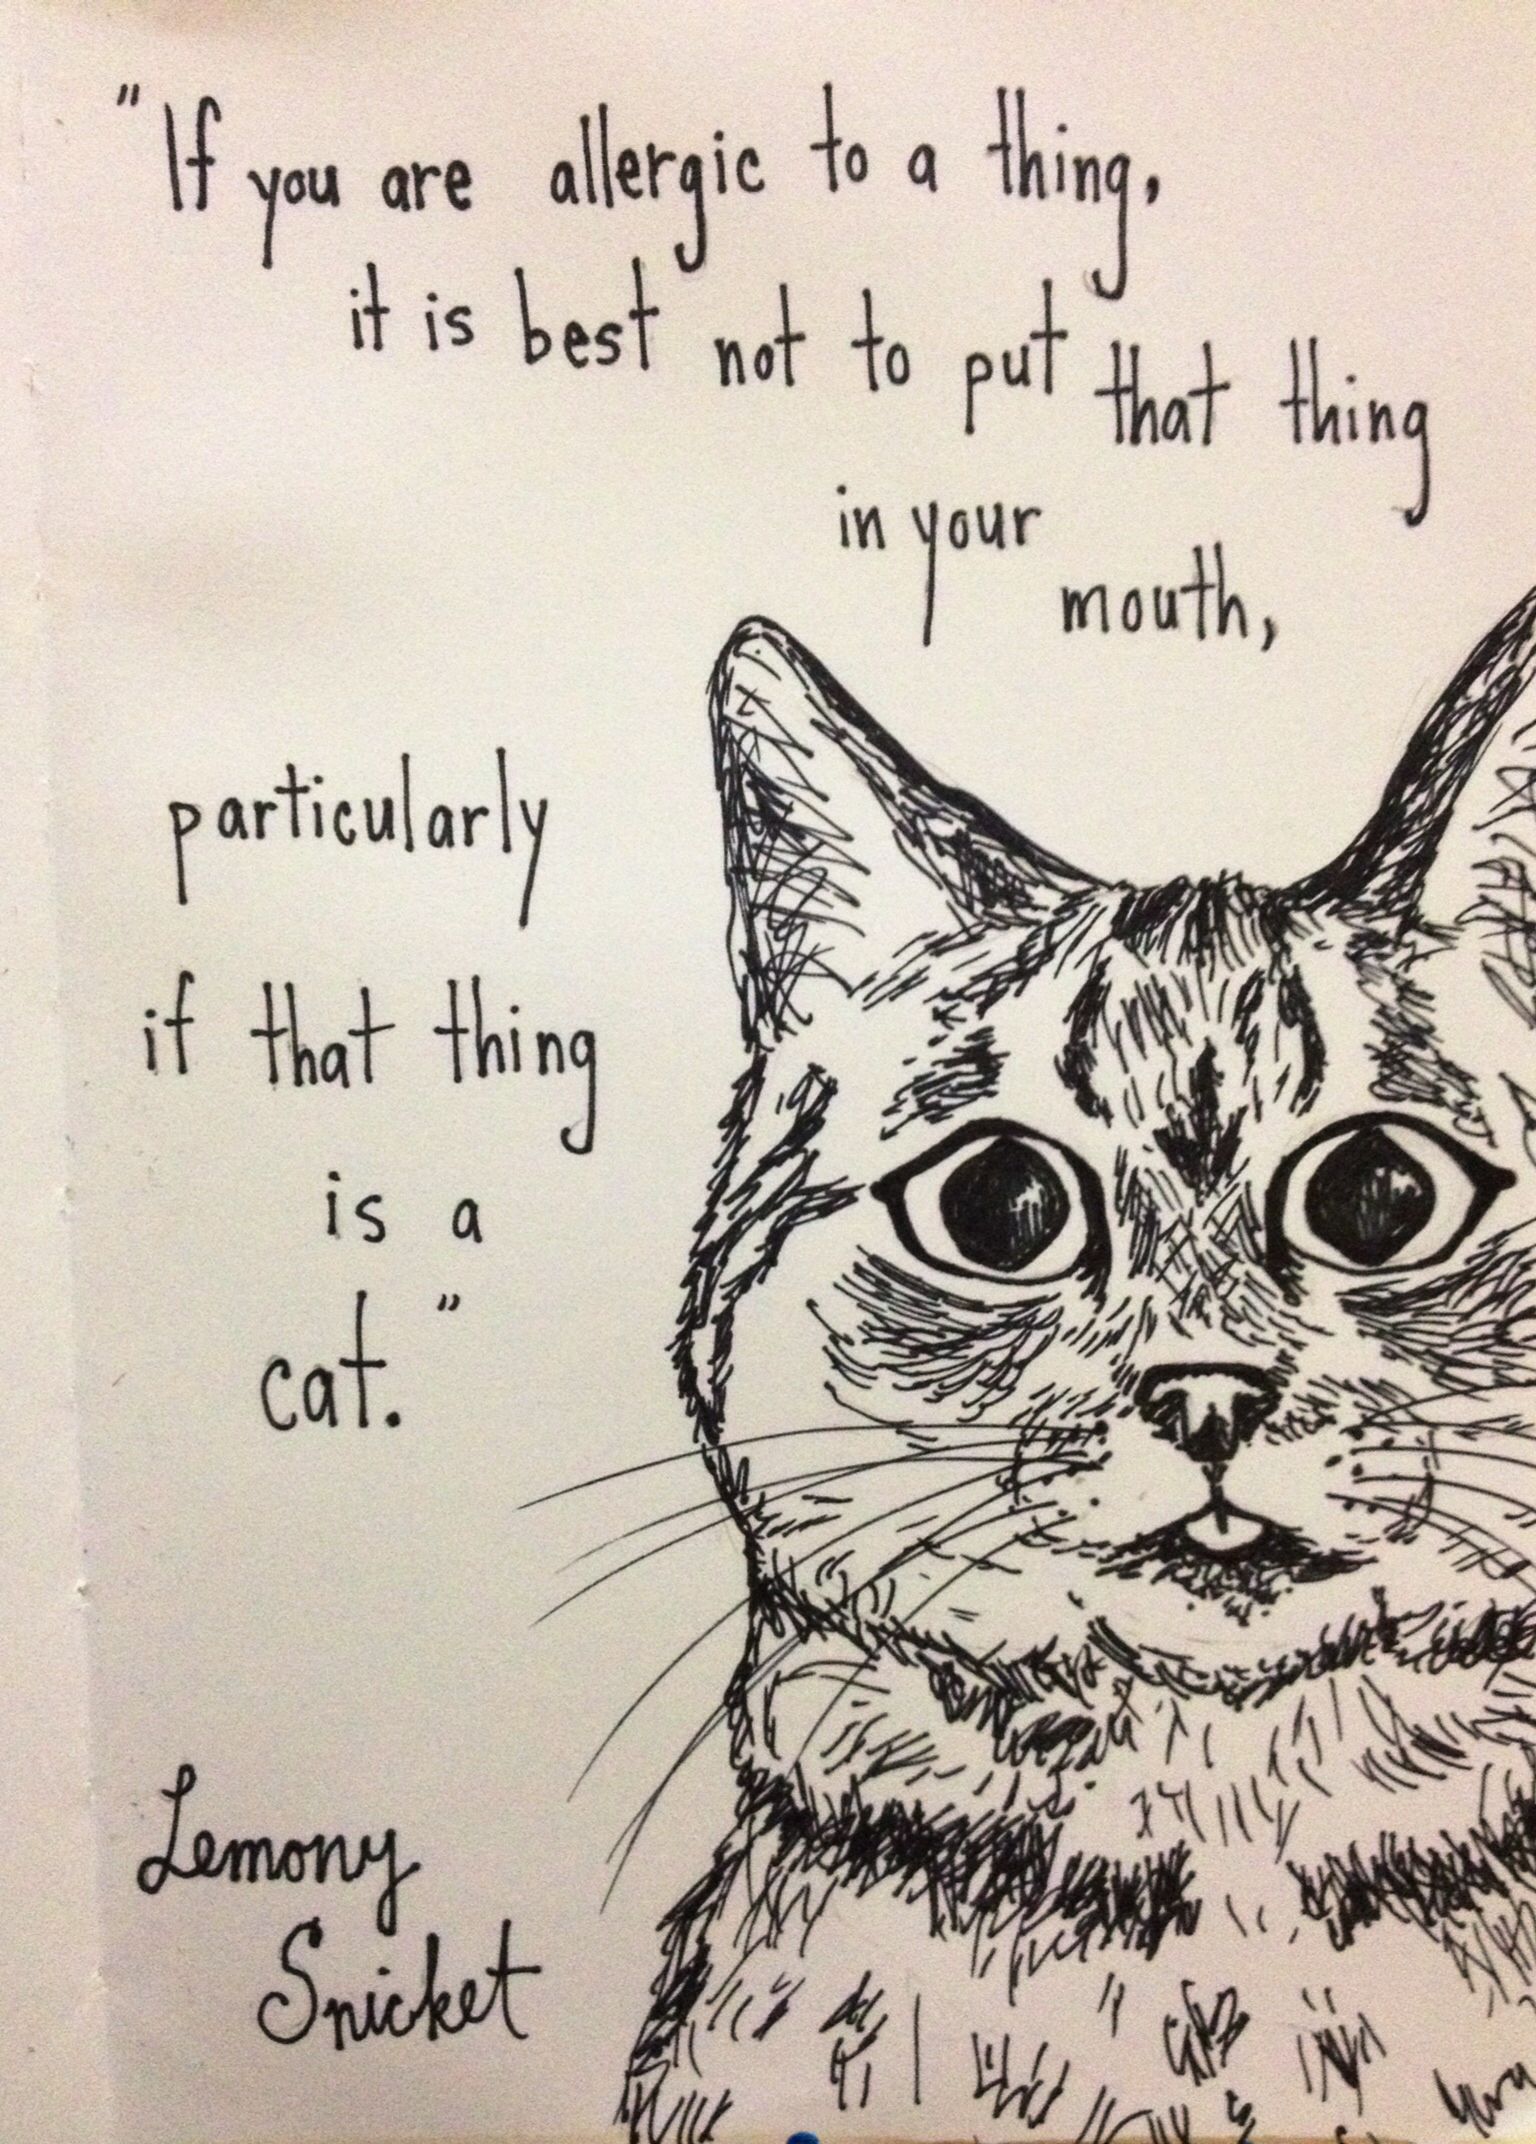 "If you are allergic to a thing,
it is best not to put that thing
in your
mouth,
particularly
if that thing
is a
cat."
Lemony
Snicket